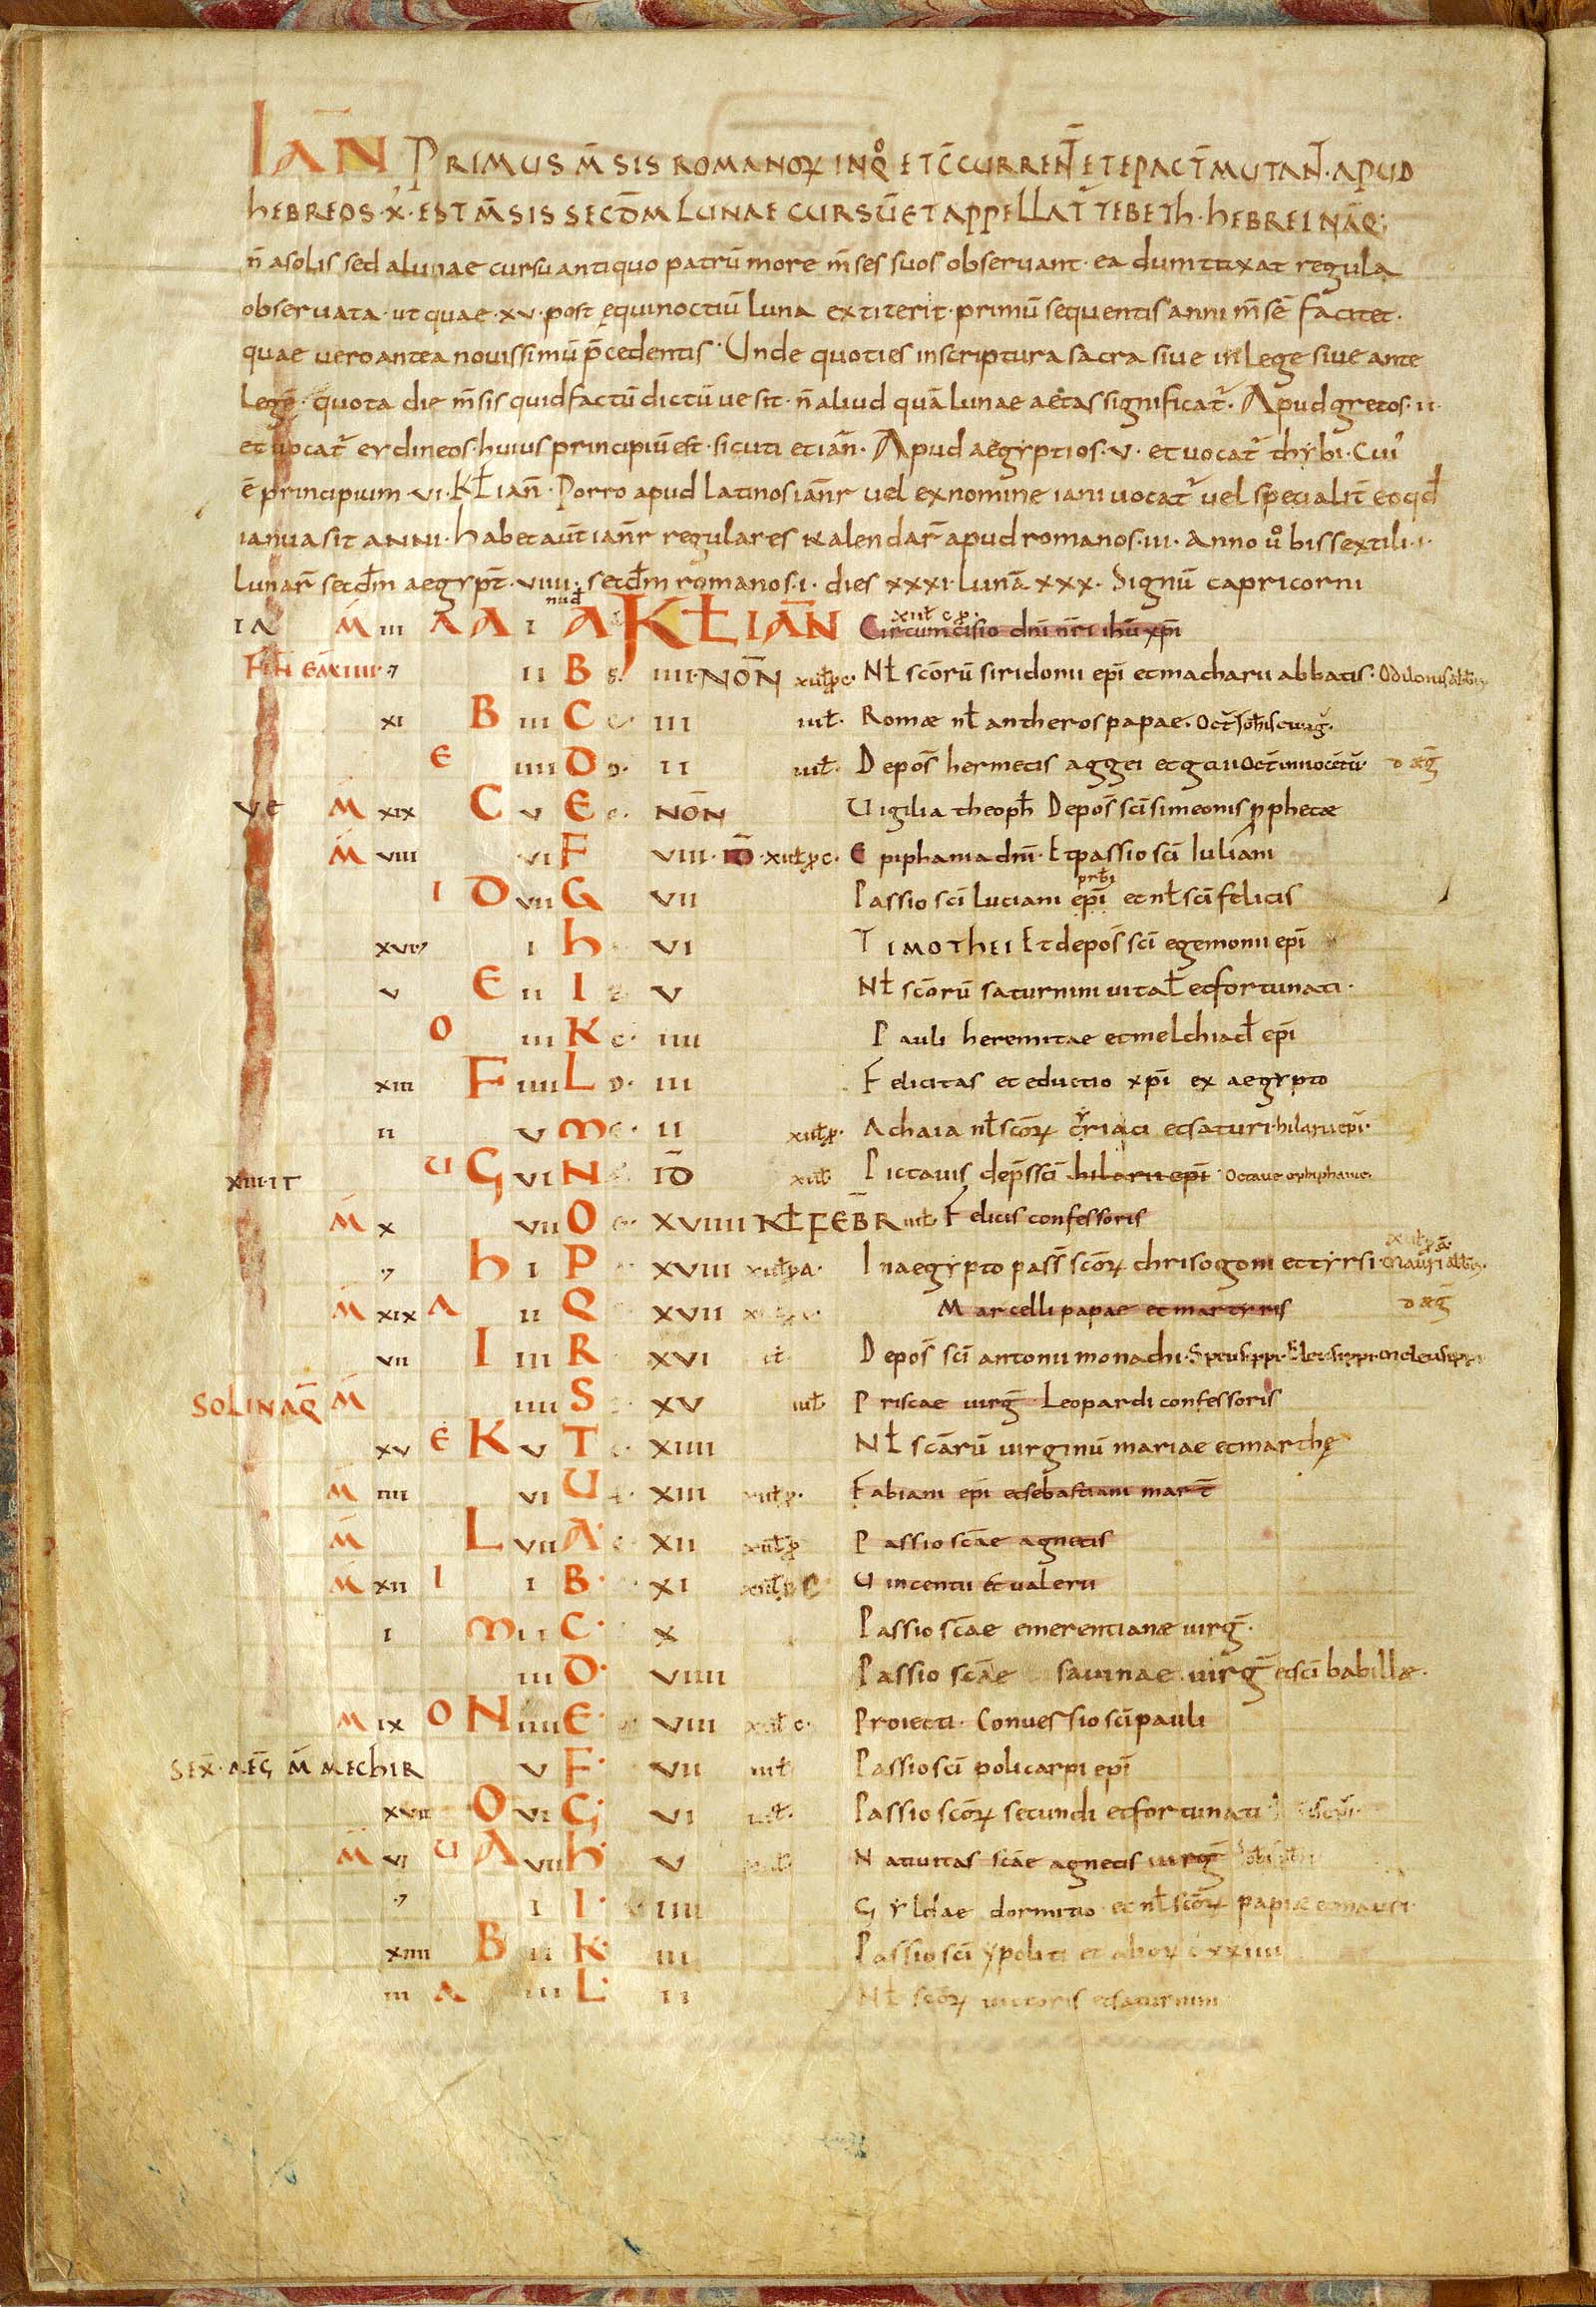 IAN̄ PRIMUS M̄SIS ROMANOꝜ INQͦ ET C̄CURREN̄T ET EPACT̄ MUTAN̄T· APUD
HEBREOS·X·EST M̄SIS SECD̄M LUNAE CURSŪ ET APPELLAT̄ TEBETH·HEBREI NĀQ;
n̄ asolis sed alunae cursu antiquo patrū more m̄ses suos observant· ea dumtaxat regula
observata· ut quae·xv·post ęquinoctiū luna extiterit·primū sequentis anni m̄sē faciet·
quae vero antea novissimū p̄cedentis· Unde quoties inscriptura sacra sive inlege sive ante
legē· quota die m̄sis quid factū dictū ve sit· n̄ aliud quā lunae aetas significat̄· Apud grecos·ii·
et vocat̄ eydineos·huius principiū est·sicuti et ian̄· Apud aegyptios·v· et vocat̄ thybi·Cui᾿
ē principium·vi·Kł ian̄·Porro apud latinos ian̄r vel exnomine iani vocat̄ vel specialit̄ eo qd̄
ianua sit anni·habet aut̄ ian̄r regulares kalendar̄ apud romanos·iii· Anno ůͦ bissextili·i·
Lunar̄ secd̄m aegypt̄·viiii·secd̄m romanos·i· dies xxxi·Lunā xxx· Signū capricorni
IA M̄ iii A A i A KŁ IAN̄ Circumcisio dn̄i nr̄i ih̄u xp̄i
ii B iiii·NON̄ Nł sc̄orū siridonii ep̄i et macharii abbatis· Odilonis abb̄
xi B iii C iii Romæ nł antheros papae·
e iiii D ii Depos̄ hermetis aggei et gaii
M̄ xix C v E NON̄ Uigilia theoph̄ Depos̄ sc̄i simeonis p̱phetæ
M̄ viii vi F VIII·ID̄ Epiphania dn̄i· Et passio sc̄i Iuliani
I D vii G VII Passio sc̄i luciani ep̄i et nł sc̄i felicis
xvi i h VI TIMOTHEI Et depos̄ sc̄i egemonii ep̄i
v E ii I V Nł sc̄orū saturnini uitał et fortunati·
O iii K iiii Pauli heremitae et melchiad̄ ep̄i
xiii F iiii L iii Felicitas et eductio xp̄i ex aegypto
ii v M ii Achaia nł sc̄oꝝ cyriaci et saturi·hilarii ep̄i·
xiii·IT U G vi N ID̄ Pictauis dep̄s sc̄i hilarii ep̄i·Octave epiphaniae
M̄ x vii O XVIIII KŁ FEB̄R Felicis confessoris
h i P XVIII Inaegypto pass̄ sc̄oꝝ chrisogoni et tyrsi·Mauri abb̄
M̄ xix A ii Q XVII Marcelli papae et martyris
vii I iii R XVI Depos̄ sc̄i antonii monachi·
SOL INAQ̄ M̄ iiii S XV Priscae uirḡ Leopardi confessoris
xv E K v T XIIII Nł sc̄arū uirginū mariae et marthę
M̄ iiii vi U XIII Fabiani ep̄i et sebastiani mart̄
M̄ L vii A XII Passio sc̄ae agnetis
M̄ xii I i B XI Uincentii et ualerii
i M ii C X Passio sc̄ae emerentianæ uirḡ·
iii D VIIII Passio sc̄ae sauinae uirḡ et sc̄i babillæ·
M̄ ix O N iiii E VIII Proiecti· Conuersio sc̄i pauli
SEX̄·AEḠ M̄ MECHIR v F VII Passio sc̄i policarpi ep̄i
xvii O vi G VI Passio sc̄oꝝ secundi et fortunati
M̄ vi U A vii h V Natiuitas sc̄ae agnetis uirḡ
i I IIII Gyldae dormitio et nł sc̄oꝝ papiæ et mauri·
xiiii B ii K III Passio sc̄i ypoliti et alioꝝ cxxiiii
iii A iii L II Nł sc̄oꝝ uictoris et saturnini